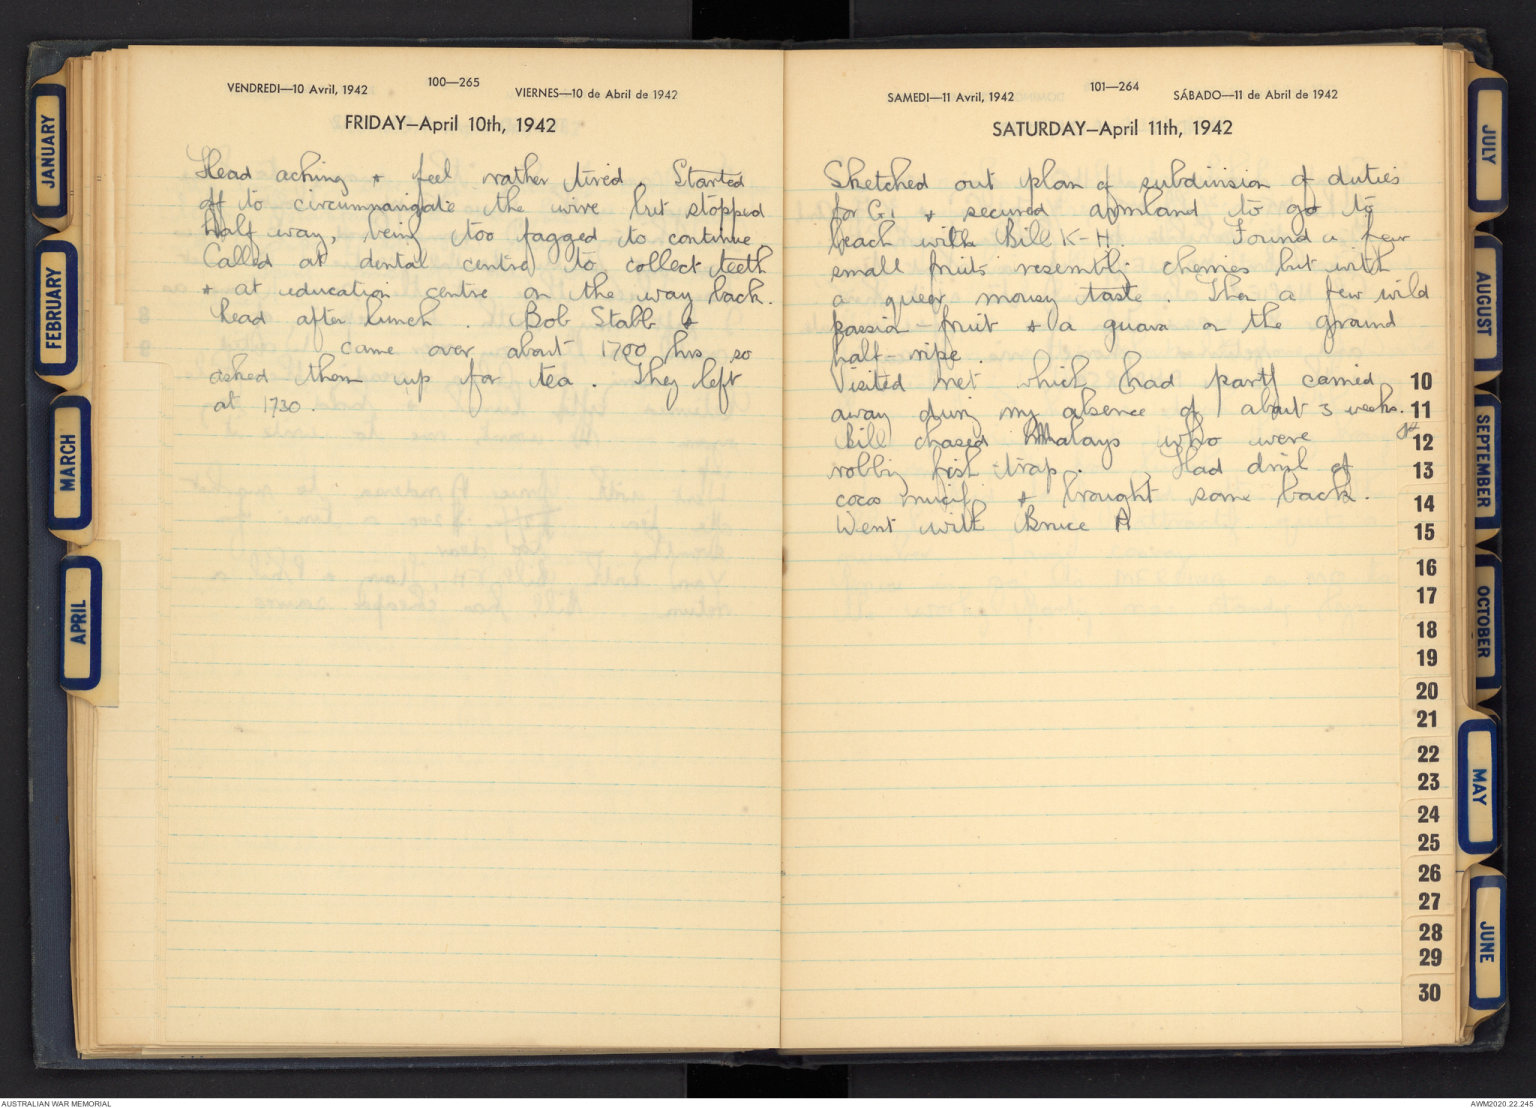 VENDREDI—10 Avril, 1942
100—265
VIERNES—10 de Abril de 1942
FRIDAY—April 10th, 1942
Head aching + feel rather tired Started
off to circumnavigate the wire but stopped
half way, being too fagged to continue
Called at dental centre to collect teeth
+ at education centre on the way back.
head after lunch . Bob Stabb +
came over about 1700 hrs so
asked them up for tea . They left
at 1730 .
SAMEDI—11 Avril, 1942
101—264
SÁBADO—11 de Abril de 1942
SATURDAY—April 11th, 1942
Sketched out plan of subdivision of duties
for G1 + secured armband to go to
beach with Bill K-H. Found a few
small fruits resembling cherries but with
a queer mousy taste . Then a few wild
passion-fruit + a guava on the ground
half-ripe .
Visited net which had party carried
away during my absence of about 3 weeks.
Bill chased Malays who were
robbing fish trap . Had drink of
coco + brought some back .
Went with Bruce A
JANUARY
FEBRUARY
MARCH
APRIL
JULY
AUGUST
SEPTEMBER
OCTOBER
MAY
JUNE
10
11
12
13
14
15
16
17
18
19
20
21
22
23
24
25
26
27
28
29
30
AUSTRALIAN WAR MEMORIAL
AWM2020.22.245